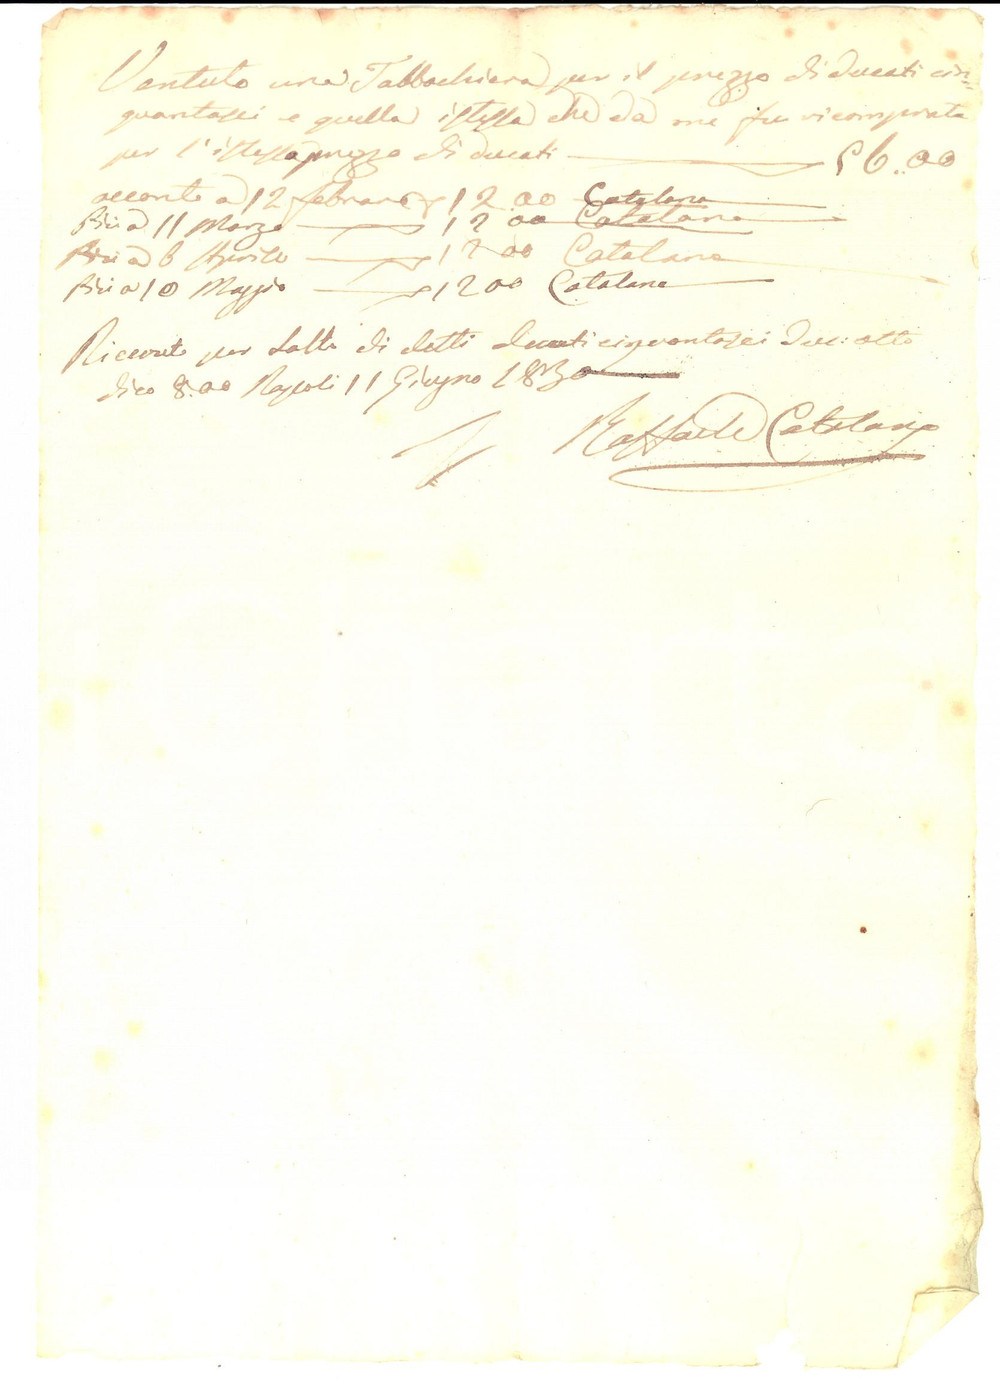 Ventuto una Tabbachiera per il prezzo di ducati cin=
quantasei e quella istessa che da me fu ricomprata
per l'istesso prezzo di ducati 56..00
acconto a 12 febraro 12 00 Catalano
Più a 11 Marzo 12 00 Catalano
Più a 6 Aprile 12 00 Catalano
Più a 10 Maggio 12 00 Catalano
Ricevuto per saldo di detti ducati cinquantasei Duc: otto
dico 8.00 Napoli 11 Giugno 1830
Raffaele Catalano